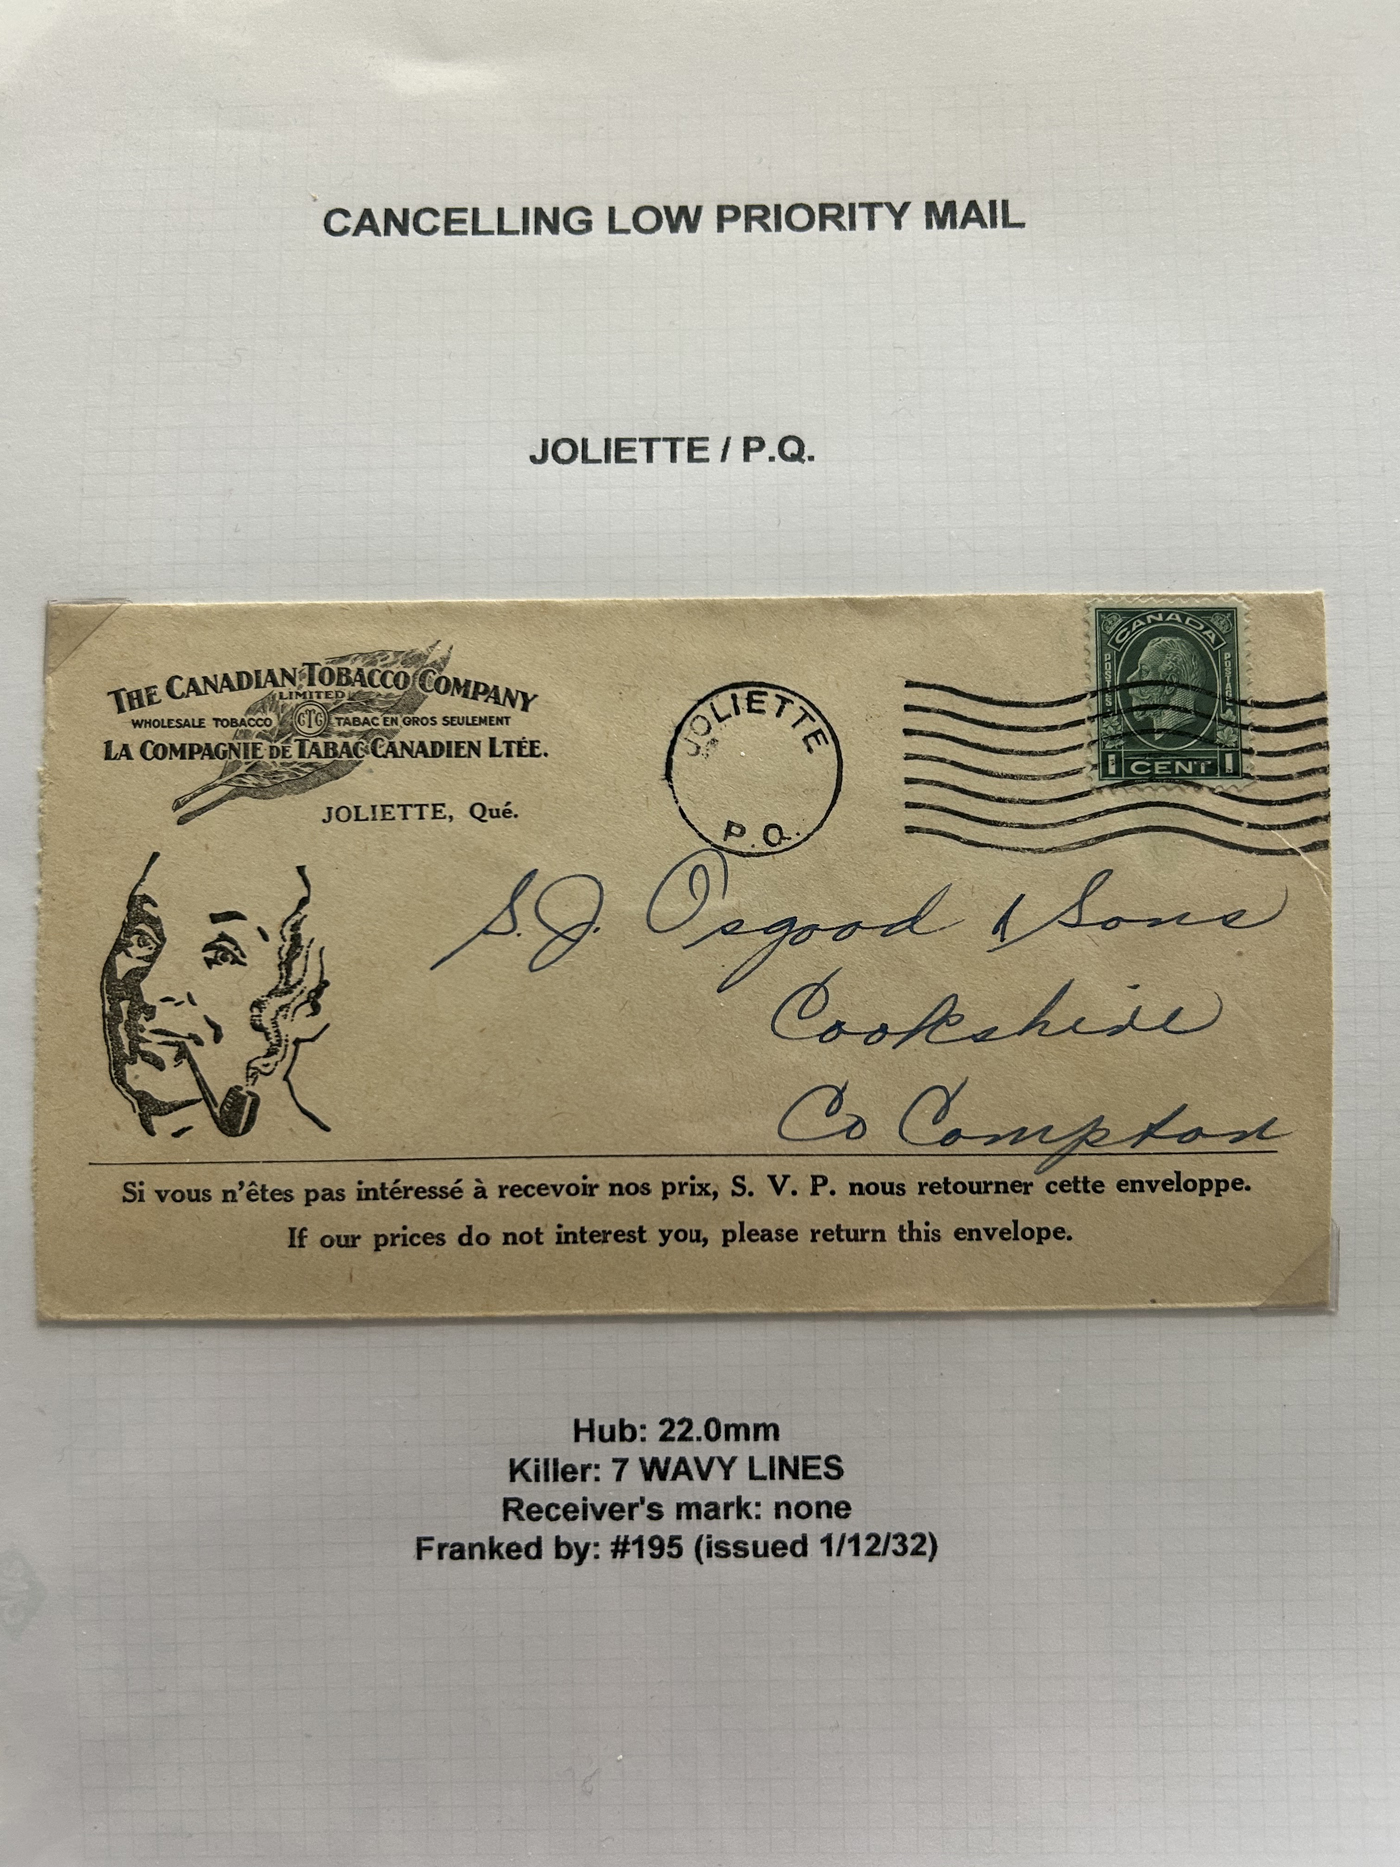 CANCELLING LOW PRIORITY MAIL
JOLIETTE / P.Q.
THE CANADIAN TOBACCO COMPANY
LIMITED
WHOLESALE TOBACCO CTC TABAC EN GROS SEULEMENT
LA COMPAGNIE DE TABAC CANADIEN LTÉE.
JOLIETTE, Qué.
JOLIETTE
P.Q.
CANADA
POSTES
POSTAGE
1 CENT 1
S.J. Osgood & Sons
Cookshire
Co Compton
Si vous n'êtes pas intéressé à recevoir nos prix, S. V. P. nous retourner cette enveloppe.
If our prices do not interest you, please return this envelope.
Hub: 22.0mm
Killer: 7 WAVY LINES
Receiver's mark: none
Franked by: #195 (issued 1/12/32)